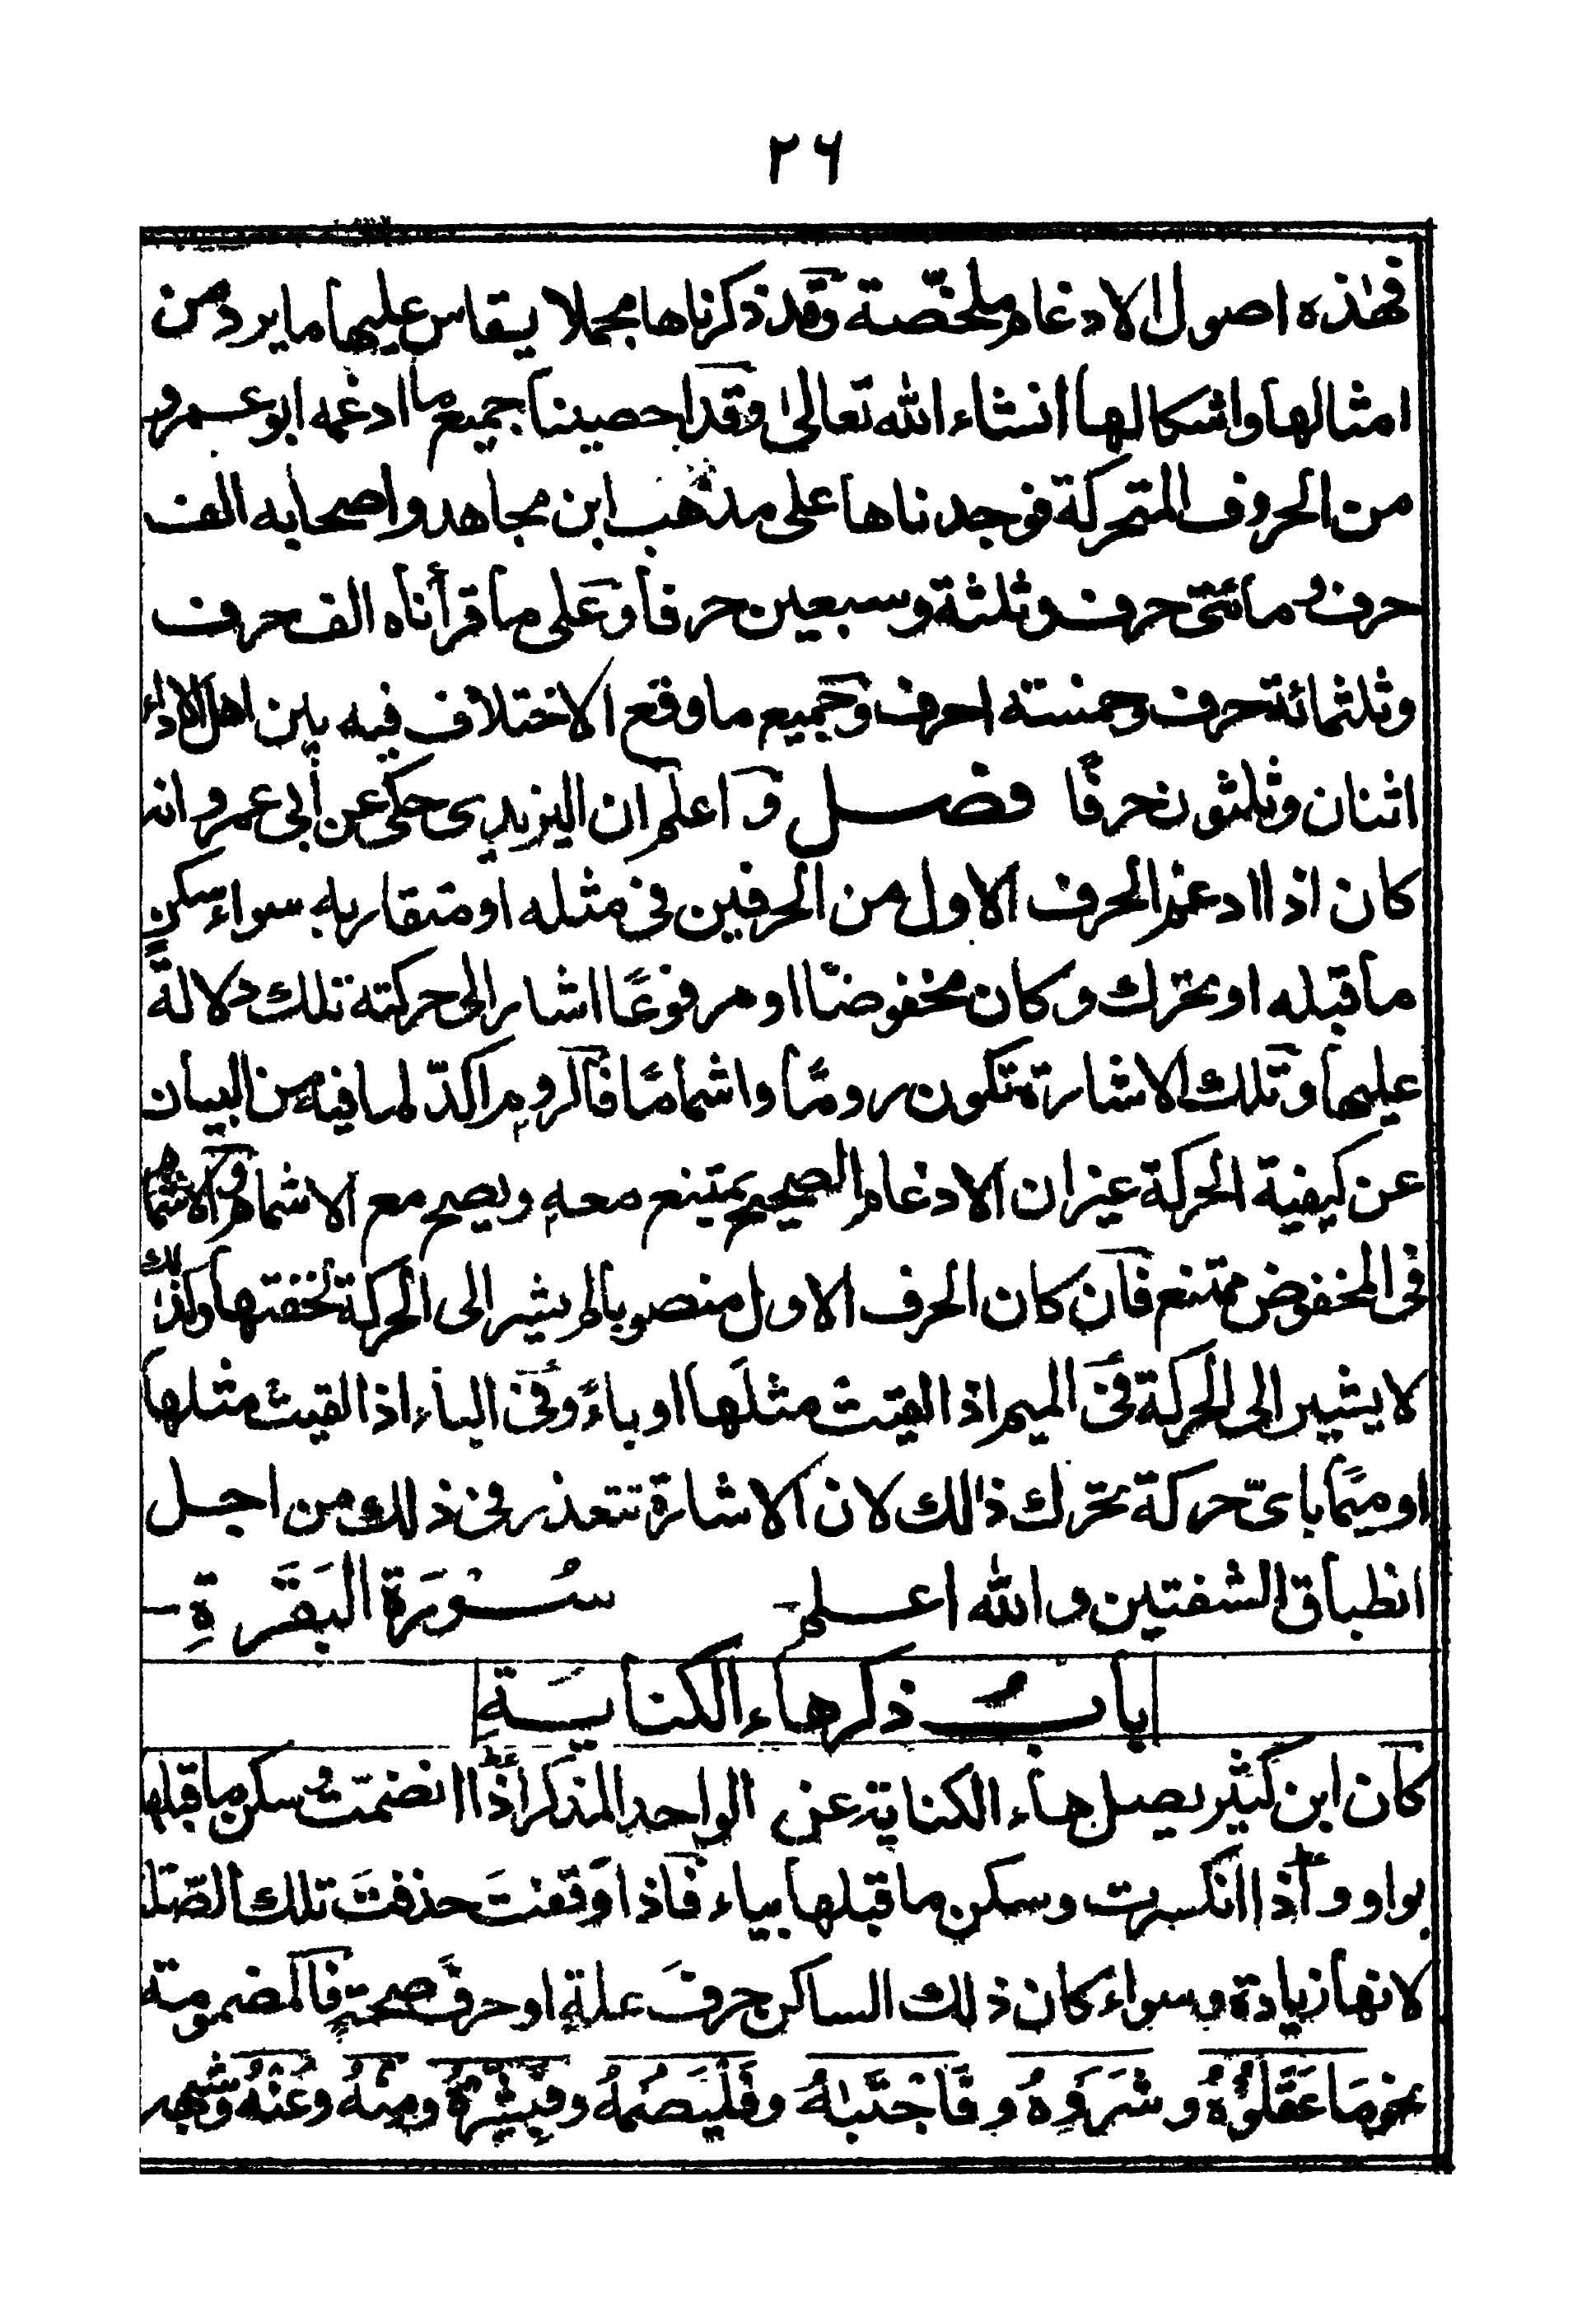 ٢٦
فهٰذه اصول الادغام ملخصّة وقد ذكرناها مجملا يقاس عليها ما يرد من
امثالها واشكالها انشاء الله تعالىٰ وقد احصينا جميع ما ادغمه ابو عمرو
من الحروف المتحركة فوجدناها على مذهب ابن مجاهد واصحابه الف
حرف ومائتى حرف وثلثة وسبعين حرفا وعلى ما قرأناه الف حرف
وثلثمائة حرف وخمسته احرف وجميع ما وقع الاختلاف فيه بين اهل الاداء
اثنان وثلثون حرفًا فصل واعلم ان اليزيدى حكى عن أبى عمرو انه
كان اذا ادغم الحرف الاول من الحرفين فى مثله او متقاربه سواء سكن
ما قبله او تحرك وكان مخفوضًا او مرفوعًا اشار الى حركته تلك دلالةً
عليها وتلك الاشارة تكون رومًا واشمامًا فالروم اكدّ لما فيه من البيان
عن كيفية الحركة غير ان الادغام الصحيح يمتنع معه ويصح مع الاشمام والاشمام
فى المخفوض ممتنع فان كان الحرف الاول منصوبا لم يشير الى الحركة لخفتها وكذلك
لا يشير الى الحركة فى الميم اذ القيت مثلَها او باءً وفى الباء اذا لقيت مثلها
او ميمًا باىّ حركة تحرك ذالك لان الاشارة تتعذر فى ذلك من اجل
انطباق الشفتين والله اعلم- سُورَة البَقَرةِ-
بابُ ذكر هاء الكنايَةِ
كان ابن كثير يصل هاء الكناية عن الواحد المذكر اذا انضمت وسكن ما قبلها
بواو واذا انكسرت وسكن ما قبلها بياء فاذا وَقفتَ حذفتَ تلك الصّلة
لانها زيادة وسواء كان ذلك الساكن حرفَ علةٍ او حرفَ صحةٍ فالمضمومة
نحو مَا عَقَلُوْهُ وشَرَوْهُ وفَاجْتَبٰهُ وفَلْيَصُمْهُ وفَبَشِّرْهُ ومِنْهُ وعَنْهُ وشبهه